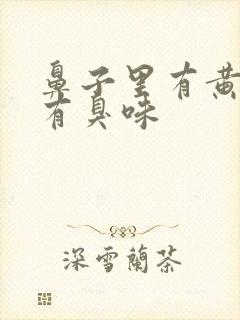 鼻子里有黄
有臭味
深雪蘭茶